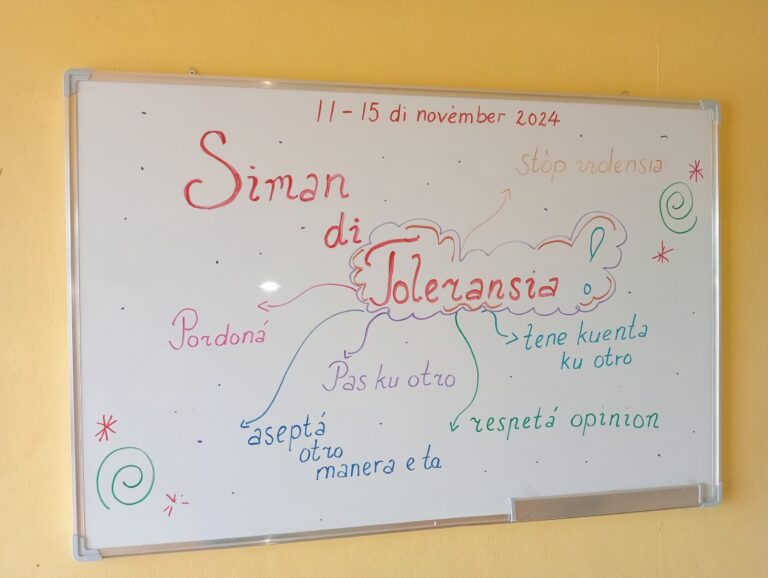 11-15 di novèmber 2024
Siman
di
Toleransia!
stòp violensia
Pordoná
Pas ku otro
tene kuenta
ku otro
aseptá
otro
manera e ta
respetá opinion